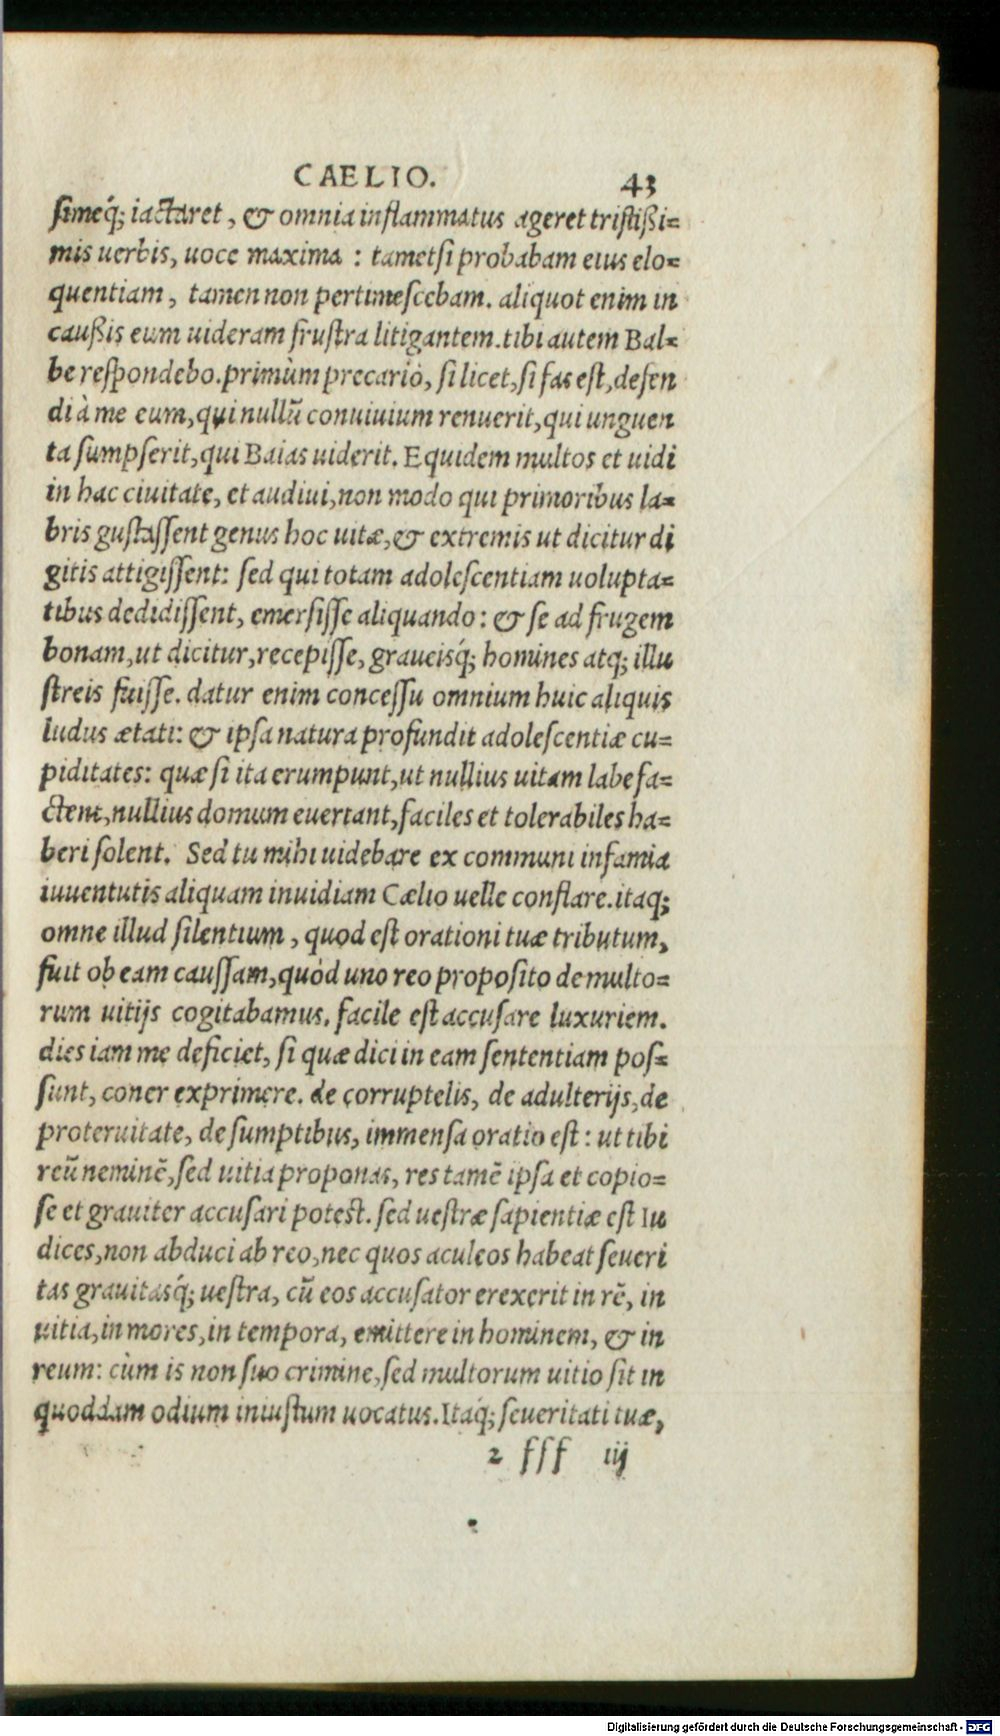 CAELIO. 43
simeq́; iactaret, & omnia inflammatus ageret tristißi=
mis uerbis, uoce maxima : tametsi probabam eius elo=
quentiam, tamen non pertimescebam. aliquot enim in
caußis eum uideram frustra litigantem. tibi autem Bal=
be respondebo. primùm precariò, si licet, si fas est, defen
di à me eum, qui nullū conuiuium renuerit, qui unguen
ta sumpserit, qui Baias uiderit. Equidem multos et uidi
in hac ciuitate, et audiui, non modo qui primoribus la=
bris gustassent genus hoc uitæ, & extremis ut dicitur di
gitis attigissent: sed qui totam adolescentiam uolupta=
tibus dedidissent, emersisse aliquando: & se ad frugem
bonam, ut dicitur, recepisse, graueisq́; homines atq; illu
streis fuisse. datur enim concessu omnium huic aliquis
ludus ætati: & ipsa natura profundit adolescentiæ cu=
piditates: quæ si ita erumpunt, ut nullius uitam labefa=
ctent, nullius domum euertant, faciles et tolerabiles ha=
beri solent. Sed tu mihi uidebare ex communi infamia
iuuentutis aliquam inuidiam Cælio uelle conflare. itaq;
omne illud silentium, quod est orationi tuæ tributum,
fuit ob eam caussam, quòd uno reo proposito de multo=
rum uitijs cogitabamus. facile est accusare luxuriem.
dies iam me deficiet, si quæ dici in eam sententiam pos=
sunt, coner exprimere. de corruptelis, de adulterijs, de
proteruitate, de sumptibus, immensa oratio est: ut tibi
reū neminē, sed uitia proponas, res tamē ipsa et copio=
se et grauiter accusari potest. sed uestræ sapientiæ est Iu
dices, non abduci ab reo, nec quos aculeos habeat seueri
tas grauitasq́; uestra, cū eos accusator erexerit in rē, in
uitia, in mores, in tempora, emittere in hominem, & in
reum: cùm is non suo crimine, sed multorum uitio sit in
quoddam odium iniustum uocatus. Itaq́; seueritati tuæ,
2 fff iij
Digitalisierung gefördert durch die Deutsche Forschungsgemeinschaft - DFG